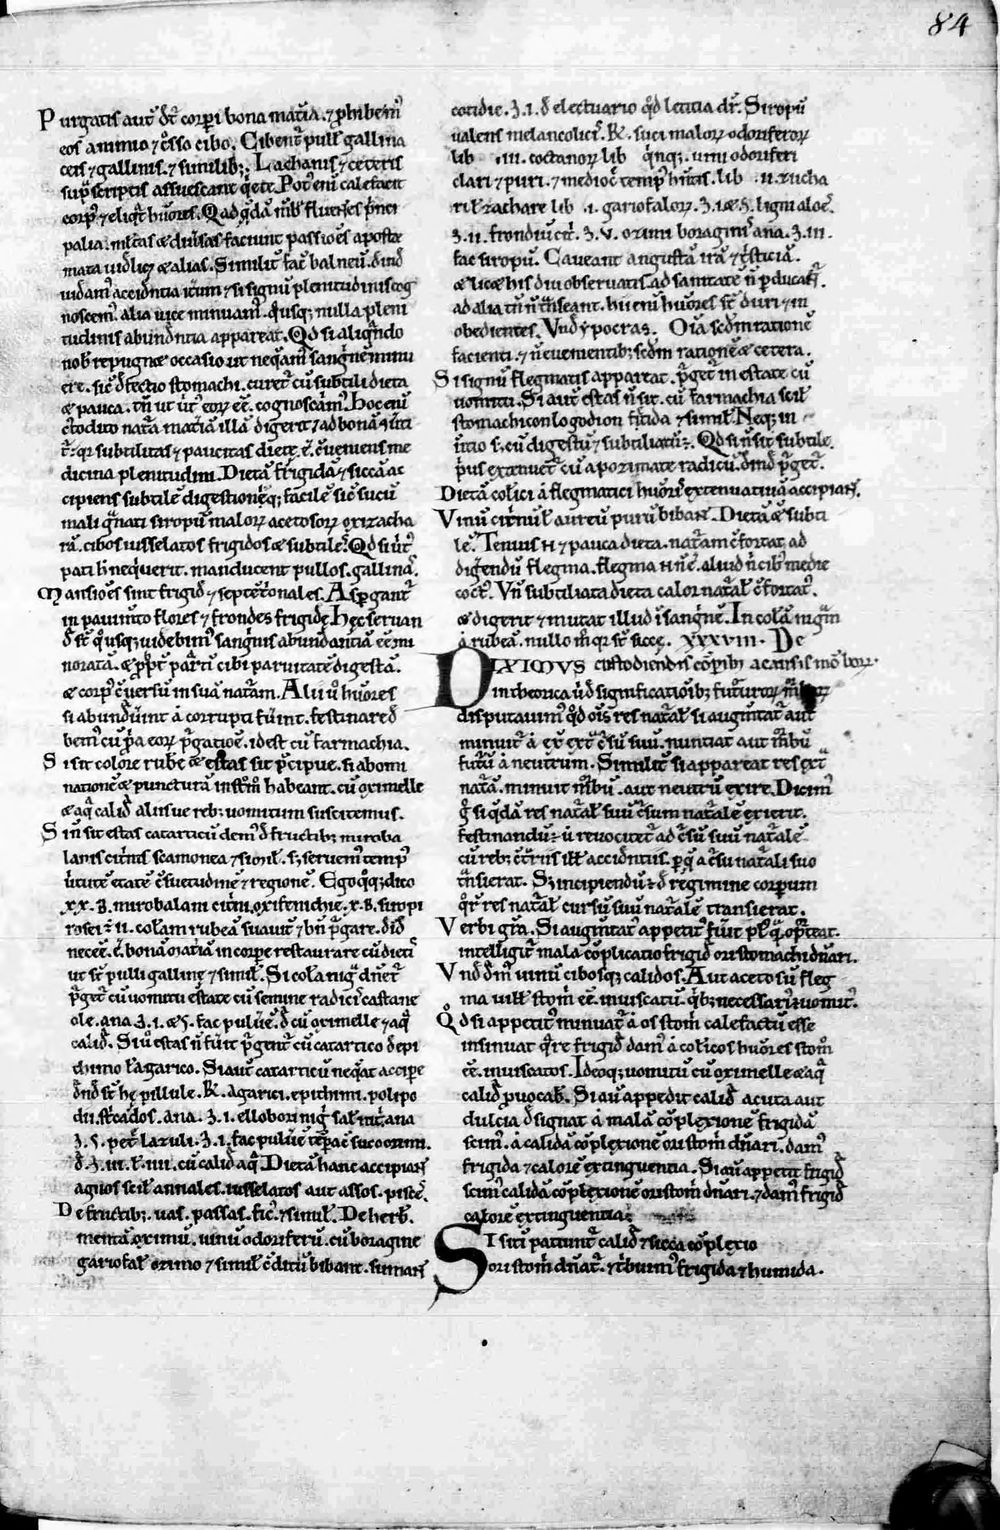 84
Purgatis aut̄ dr̄ corpi bona mat̄ia. ⁊ ꝓhibem᷒
eos a nimio ⁊ gͦsso cibo. Cibent᷑ pull᷒ gallina
ceis ⁊ gallinis. ⁊ similib;. Lachanis ⁊ ceteris
sup̄scriptis assuescant
corp᷒ ⁊ eliq̄t hūores.
palia. ml̄tas æ diūsas faciunt passiōes aposte
mata uidlic; æ alias. Similit̄ fac̄ balneū. dind̄
uidam᷒ accid̄ntia it̄um ⁊ si signū plenitudinis cog
noscem᷒. alia uice minuam᷒. q̊usq; nulla pleni
tudinis abund̄ntia appareat. Qd̄ si aliq̄ndo
nob̄ repugnæ occasio ut neq̄am᷒ sanguinē minu
ere. sic̄ d̄fectio stomachi. curet᷑ cū subtili dieta
æ pauca. tn̄ ut ūt᷒ eoꝝ ēē. cognoscam᷒. hoc enī
c̄todito nat̄a mat̄iā illā digerit ⁊ ad bonā
subtilitas ⁊ paucitas dietę. ē. c̄ueniens me
dicina plenitudini. Dietā frigidā ⁊ siccā ac
cipiens subtilē digestionēq; facilē sic̄ sucū
mali g̊nati siropū maloꝝ acetosoꝝ oxizacha
rā. cibos iusselatos frigidos æ subtiles. Qd̄ si
pati h̄ neq̄uerit. manducent pullos. gallinā.
Mansiōes sint frigid̄ ⁊ septēt̄onales. Asꝑgant᷑
in pauim̄to flores ⁊ frondes frigidę. Hęc seruan
d̄ st̄ q̊usq; uidebim᷒ sanguis abundantiā ēē mi
noratā. æ ꝓpt̄ paruitatē digestā.
æ corp᷒ c̄uersū in suā nat̄am. Alii ū hūores
si abund̄ūint a corrupti fūint. festinare d̄
bem᷒ cū ꝑ̄a eoꝝ p̄gatiōe. id est cū farmachia.
Si sit colore rube æ estas sit p̄cipue. si abomi
nationē æ puncturā in stōm̄ habeant. cū oximelle
æ aq̄ calid̄ aliisue reb; uomitum suscitemus.
Si n̄ sit estas catarticū dem᷒ d̄ fructib; miroba
lanis cit̄nis scamonea ⁊ simil̄. s; seruem᷒ temp᷒
ūtutē etatē c̄suetudinē ⁊ regionē. Ego q̊q; dico
xx. ʒ. mirobalani cit̄ni. oxifenichie. x. ʒ. siropi
rosei ℥ ii. col̄am rubeā suauit̄ ⁊ bn̄ p̄gare. did̄
necēē. ē. bonā mat̄iā in corpe restaurare cū dieti
ut st̄ pulli galline ⁊ simil̄. Si col̄a nig̊ dn̄et᷑
p̄get᷑ cū uomitu estate cū semine radicis castane
ole. ana ʒ. i. æ s. fac puluē. d̄ cū oximelle ⁊ aq̄
calid̄. Si ū estas n̄ fūit p̄gent᷑ cū catartico d̄ epi
thimo ł agarico. Si aut̄ catarticū neq̄at accipe
d̄nd̄ st̄ hę pillule. ℞. agarici. epithimi. polipo
dii. st̄cados. ana. ʒ. i. ellobori nig̊ sal̄ ana
ʒ. s. pet̄ lazuli. ʒ. i. fac puluē suco ozimi.
d̄ ʒ. iii. ł. iiii. cū calid̄ aq̄. Dietā hanc accipiant
agnos scil̄ annales. iusselatos aut assos. pisces.
De fructib;. uas. passas. fic᷒. ⁊ simil̄. De herb̄.
menta. ozimū. uinū odoriferū. cū boragine
gariofal̄ ozimo ⁊ simil̄ c̄ditū bibant. sumant
cotidie. ʒ. i. d̄ electuario q̊d letitia dr̄. Siropū
ualens melancolic᷒. ℞. suci maloꝝ odoriferoꝝ
lib .iii. coctanoꝝ lib q̊nq;. uini odoriferi
clari ⁊ puri. ⁊ medioc̄ temp᷒ hn̄tis. lib .ii. zucha
ri ł zachare lib .i. gariofaloꝝ. ʒ. i æ s. ligni aloe.
ʒ. ii. frondiū cit̄. ʒ. v. ozimi boragīs ana. ʒ. iii.
fac siropū. Caueant angustā irā ⁊ t̄sticiā.
æ licæ his diu obseruatis. ad sanitatē n̄ ꝑducant᷑.
ad alia tn̄ n̄ t̄nseant. hi enī hūores st̄ duri ⁊ in
obedientes. Vnd̄ ypocras. Oīa scd̄m rationē
facienti. ⁊ n̄ euenientib; scd̄m rationē æ cetera.
Si signū flegmatis appareat. p̄get᷑ in estate cū
uomitu. Si aut̄ estas n̄ sit. cū farmachia scil̄
stomachicon logodion fet̄ida ⁊ simil̄. Neq; in
initio s; cū digestū ⁊ subtiliatū ÷. Qd̄ si n̄ sit subtile.
p̄us extenuet᷑ cū apozimate radicū. dind̄ p̄get᷑.
Dietā colici a flegmatici hūoris extenuatiuā accipiant.
Vinū cit̄niū ł aureū purū bibant. Dieta æ subti
le. Tenuis ⁊ pauca dieta. nat̄am c̄fortat ad
digendū flegma. flegma n̄ ē. aliud n̄ cib᷒ medie
coct᷒. Vn̄ subtiliata dieta calor nat̄al̄ c̄fortat᷑.
æ digerit ⁊ mutat illud ī sangnē. In col̄a nig̊m
a rubeā. nullo siccę. XXXVIII. De
DIXIMVS custodiendis corpib; a causis morboꝝ.
in theorica ūd significatiōib; futuroꝝ
disputauim᷒ q̊d oīs res nat̄al̄ si augm̄tat᷑ aut
minuit᷑ a ex ext̄ c̄su suū. nuntiat aut m̄bū
futū a neutrum. Similit̄ si appareat res ext̄
nat̄ā. minuit m̄bū. aut neutrū exire. Dicim᷒
g̊ si q̄dā res nat̄al̄ suū c̄sum nat̄alē exierit.
festinandū ÷ ū reuocitet᷑ ad c̄su suū nat̄alē
cū reb; c̄t̄riis ill̄ accidn̄tiis. ꝑ q̄ a c̄su nat̄ali suo
t̄nsierat. S; incipiendū ÷ d̄ regimine corporum
q̊r res nat̄al̄ cursū suū nat̄alē transierat.
Verbi gr̄a. Si augm̄tat᷑ appetit᷒ fūit pl᷒ q̄ oporteat.
intelligit᷑ mala cōplicatio frigid̄ ori stomachi dn̄ari.
Vnd̄ dam᷒ uinū cibosq; calidos. Aut acetosū fleg
ma uill̄ stom̄ ēē inuiscatū. q̄b; necessari᷒ ÷ uomit᷒.
Qd̄ si appetit᷒ minuat᷑ a os stom̄ calefactū esse
insinuat q̊re frigid̄ dam᷒ a colicos hūores stom̄
ēē inuiscatos. Ideoq; uomitū cū oximelle æ aq̄
calid̄ ꝓuocab̄. Si aū appedit calid̄ acuta aut
dulcia d̄signat a malā cōplexionē frigidā
scim᷒. a calidā cōplexionē ori stom̄ dn̄ari. dam᷒
frigida ⁊ calorē extinguentia. Si aū appetit frigid̄
scim᷒ calidā cōplexionē ori stom̄ dn̄ari. ⁊ dam᷒ frigid̄
calorē extinguentia.
Si siti patiunt᷑ calid̄ ⁊ sicca cōplexio
ori stom̄ dn̄at᷑. ⁊ t̄buim᷒ frigida ⁊ humida.